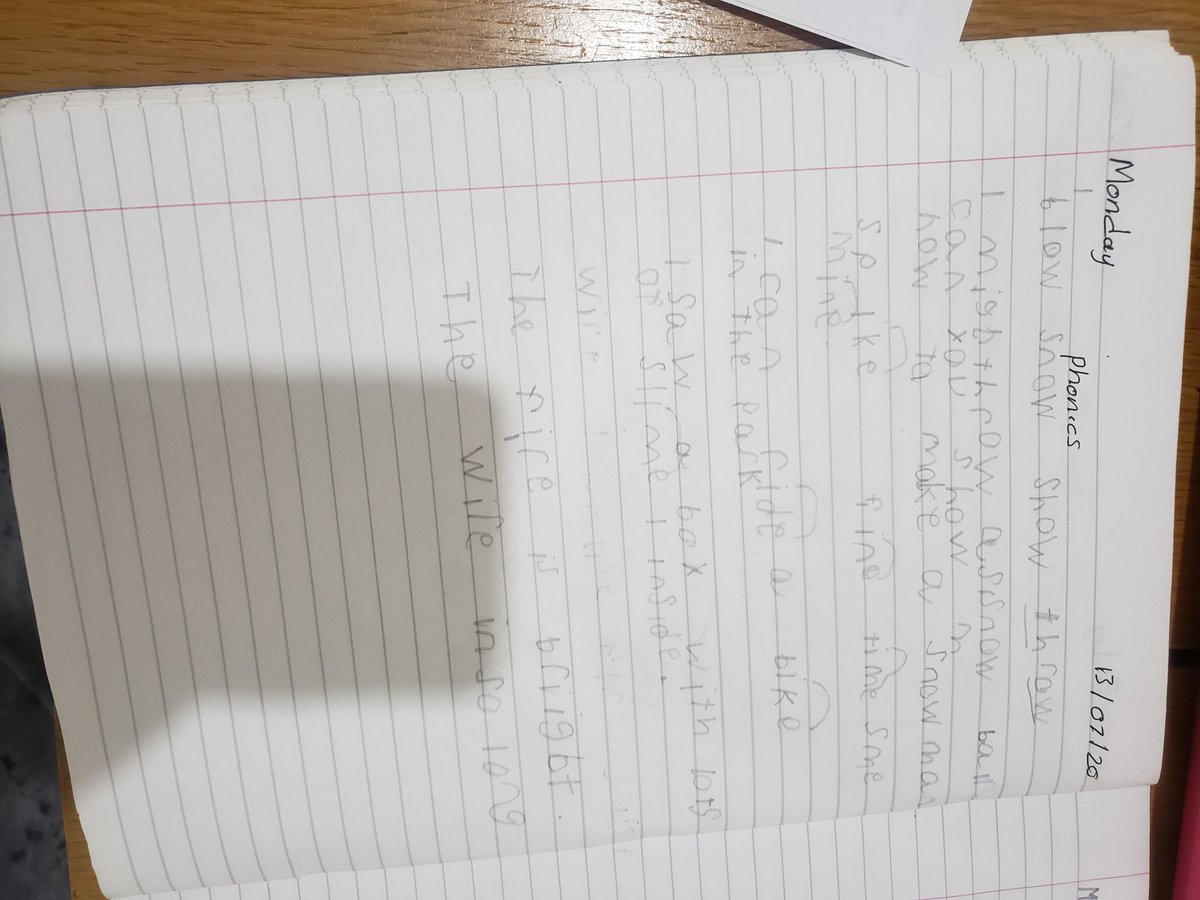 Monday 13/07/20
phonics
blow snow show throw
I migt throw a ssnow ball
can you show
how to make a snowman
spike fine time sme
mine
I can ride a bike
in the park
I saw a box with lots
of slime inside.
wire
The fire is bright.
The wire in so long
M